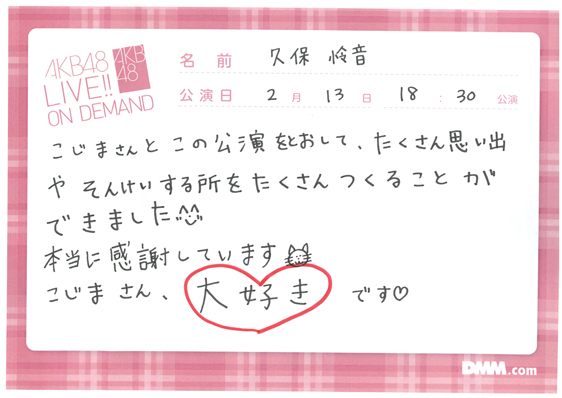 AKB48
LIVE!!
ON DEMAND
AKB
48
名前 久保 怜音
公演日 2月 13日 18:30 公演
こじまさんと この公演をとおして、たくさん思い出
や そんけいする所をたくさん つくること が
できました
本当に感謝しています
こじま さん、 大好き です♡
DMM.com